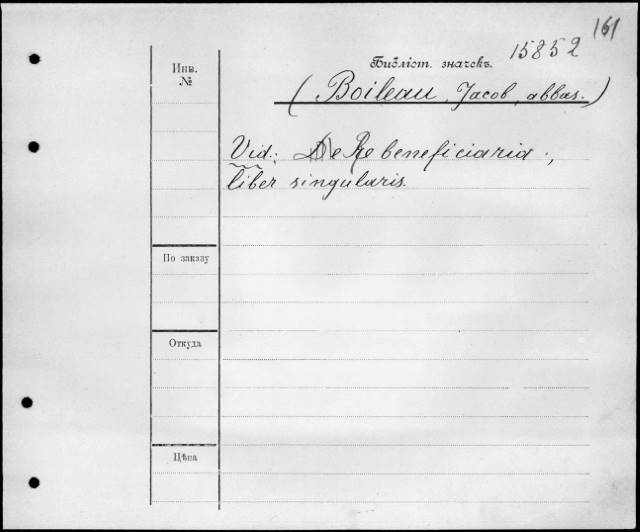 161
15852
Библіот. значекъ.
Инв.
№
(Boileau, Jacob, abbas.)
Vid.: De Re beneficiaria.,
liber singularis.
По заказу
Откуда
Цѣна